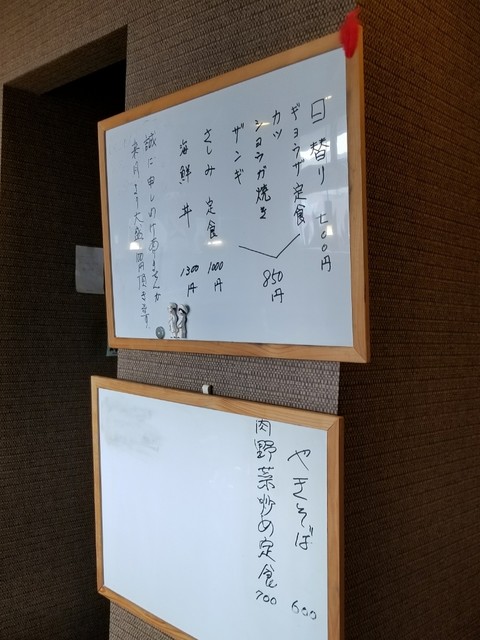 日替り 七〇〇円
ギョウザ定食
カツ
ショウガ焼き
ザンギ
850円
さしみ定食 1000円
海鮮丼 1300円
誠に申しわけありませんが
来月より大盛100円頂きます
やきそば 600
肉野菜炒め定食 700